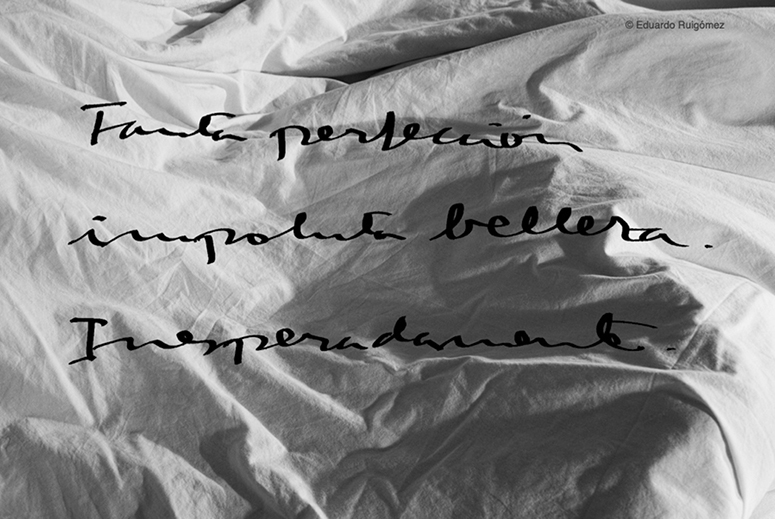 © Eduardo Ruigómez
Tanta perfección
impoluta belleza.
Inesperadamente.